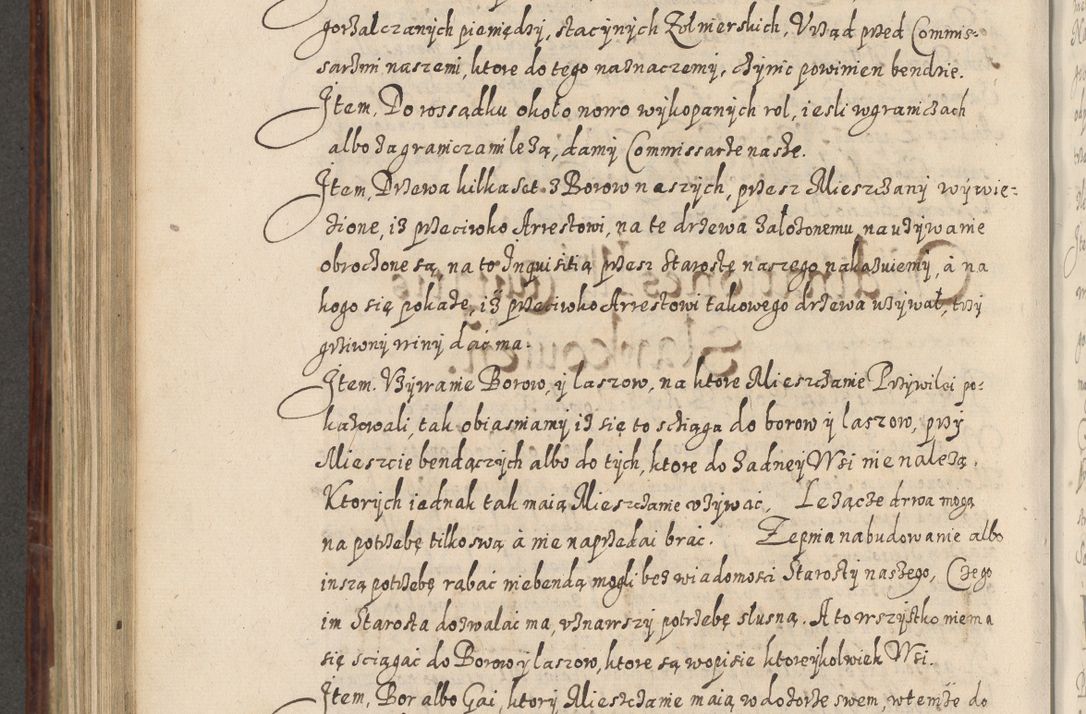 gorzalczanych pieniędzy, stacyinych Zołnierskich, Vrząd przed Commis-
sarżmi naszemi, ktore do tego naznaczemy, czynic powinien bendzie.
Item, Do rossądku około nowo wykopanych rol, iesli w graniczach
albo za graniczami leżą, damy Commissarże nasze.
Item, Drzewa kilka set z Borow naszych, przesz Mieszczany wywie-
zione, iż przeciwko Arrestowi, na te drzewa założonemu, na używanie
obroczone są, na to Inquisitią przesz Starostę naszego nakazuiemy, à na
kogo się pokaże, iż przeciwko Arrestowi takowego drzewa używał, trzy
grziwny winy dać ma.
Item. Vżywanie Borow, y laszow, na ktore Mieszczanie Przywilei po-
kazowali, tak obiasniamy, iż się to sciąga do borow y laszow, przy
Mieszcie bendączych albo do tych, ktore do żadney Wsi nie należą.
Ktorych iednak tak maią Mieszczanie vżywać, Leżącze drwa mogą
na potrzebę tilko swą à nie na przedai brać. Z epnia na budowanie albo
inszą potrzebę rabać nie bendą mogli bez wiadomości Starosty naszego, Czego
im Starosta dozwalac ma, vznawszy potrzebę słuszną. A to wszystko nie ma
się sciągać do Borow y laszow, ktore są w opisie ktoreykolwiek Wsi.
Item, Bor albo Gai, ktory Mieszczanie maią w dozorże swem, w temże do